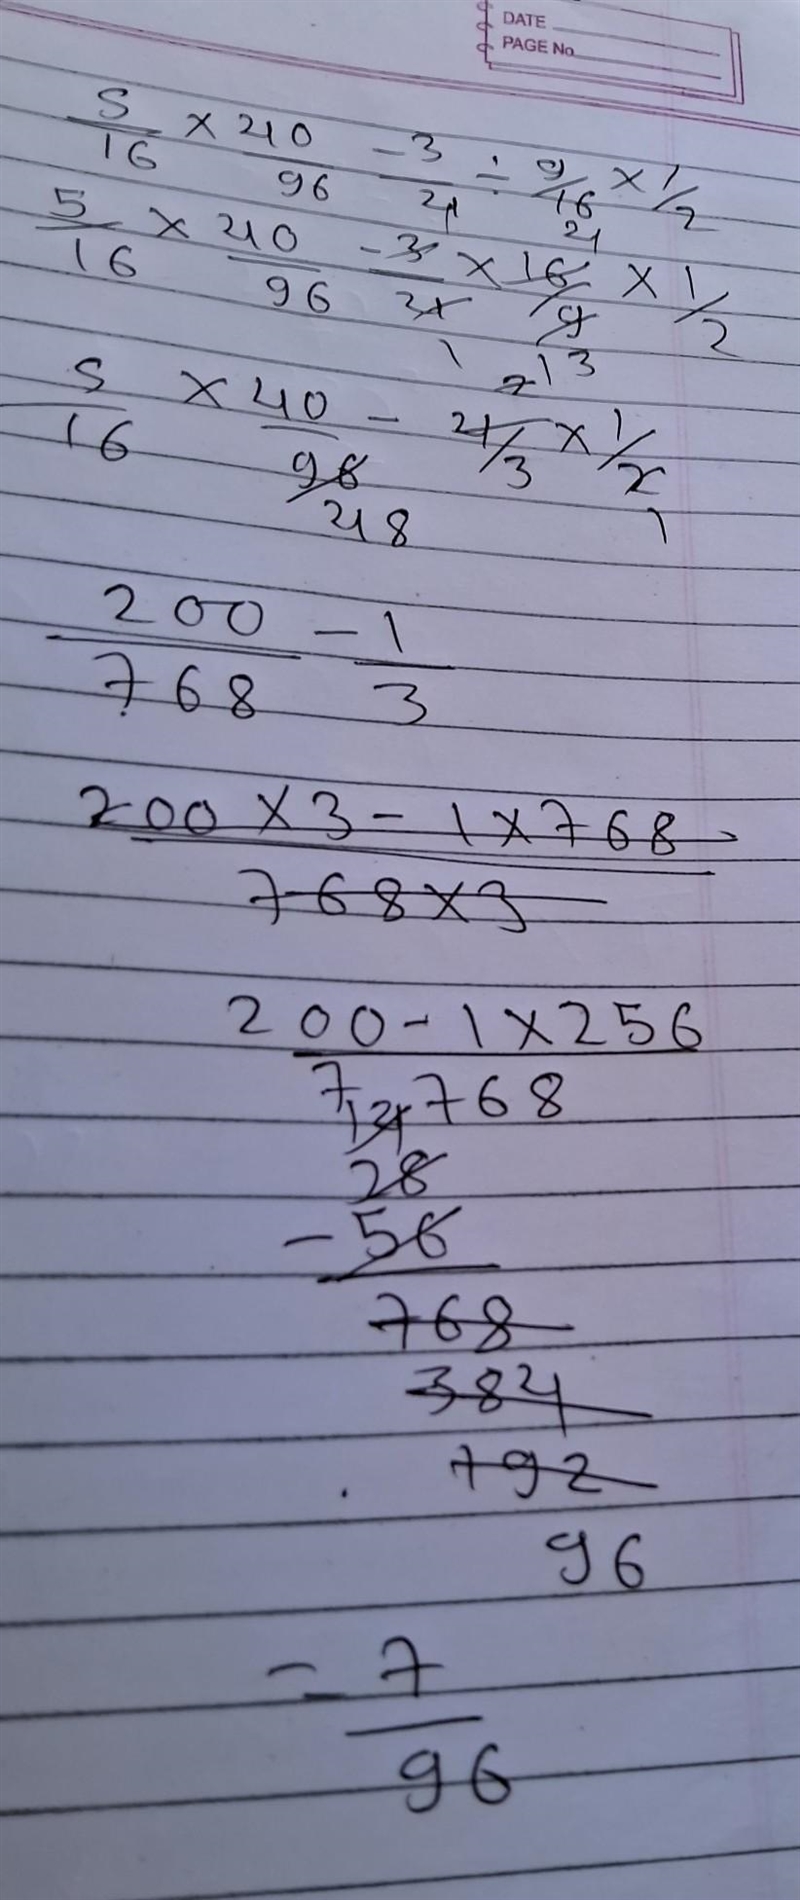 DATE
PAGE No
5/16 × 40/96 - 3/4 ÷ 9/16 × 1/2
4
5/16 × 40/96 - 3/4 × 16/9 × 1/2
1 3
2
5/16 × 40/96 - 4/3 × 1/2
48 1
200/768 - 1/3
200 × 3 - 1 × 768
768 × 3
200 - 1 × 256
768
7
14
28
- 56
768
384
192
96
- 7
96